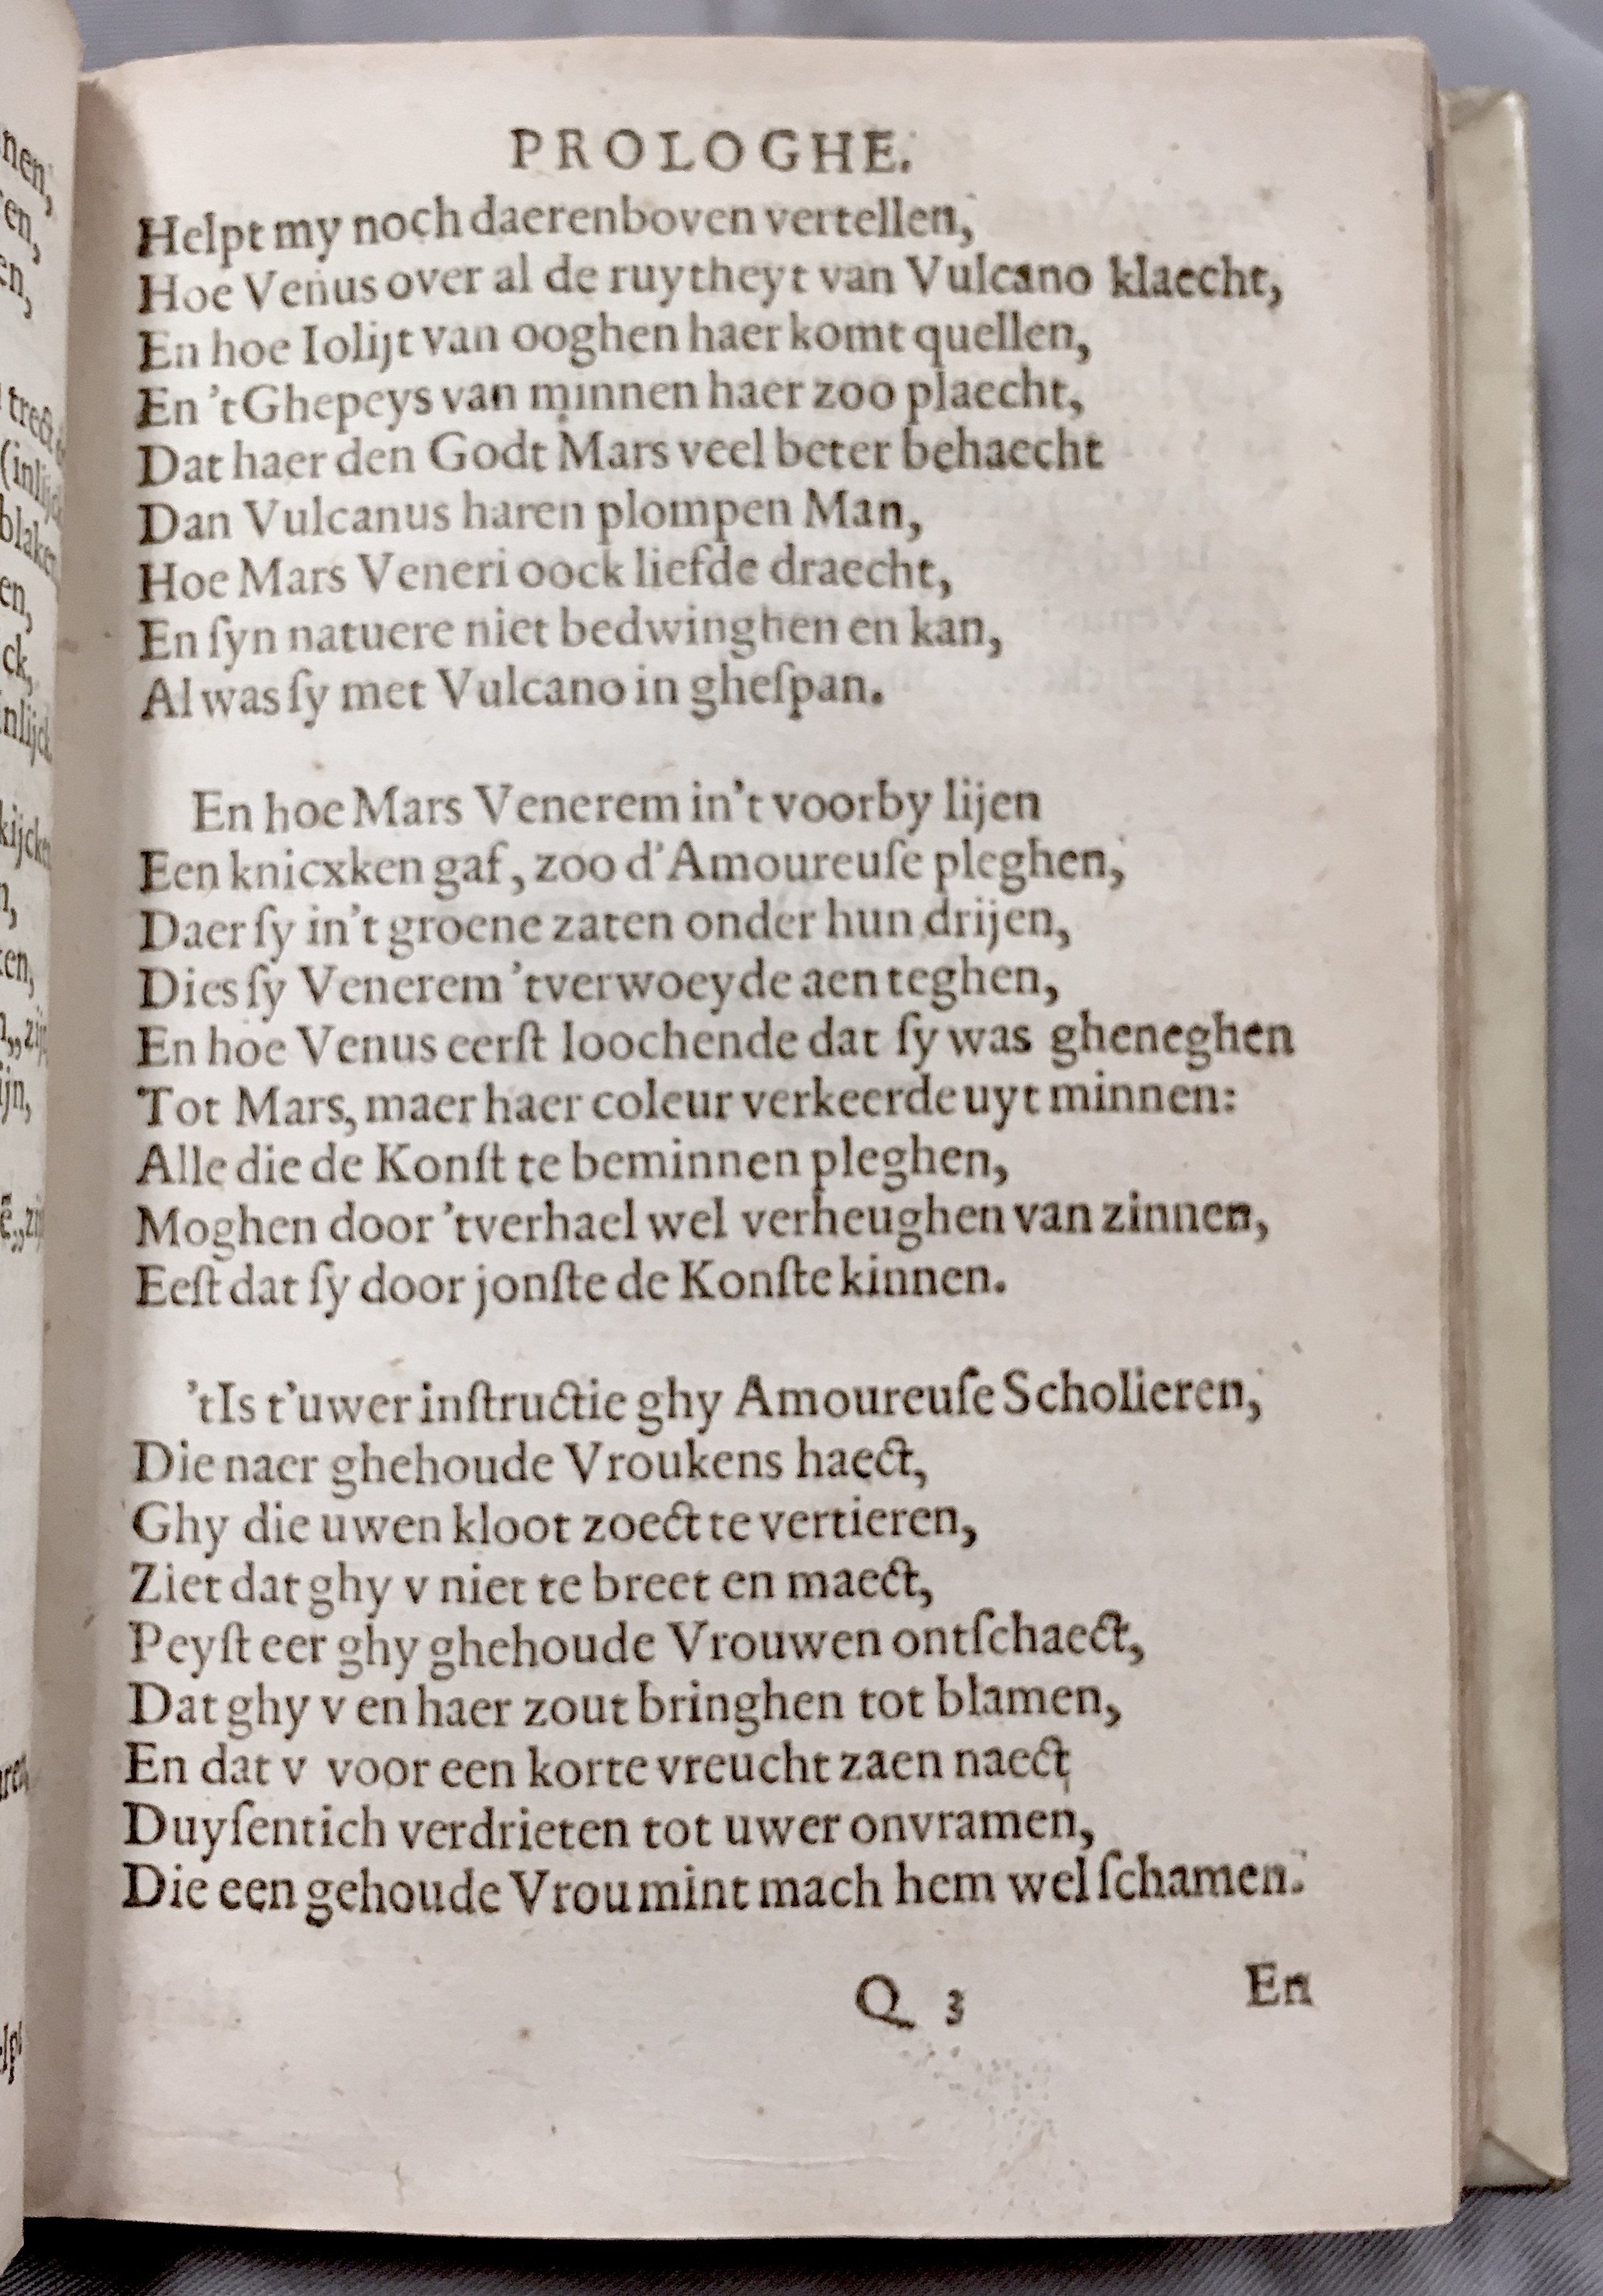 PROLOGHE.
Helpt my noch daerenboven vertellen,
Hoe Venus over al de ruytheyt van Vulcano klaecht,
En hoe Iolijt van ooghen haer komt quellen,
En 't Ghepeys van minnen haer zoo plaecht,
Dat haer den Godt Mars veel beter behaecht
Dan Vulcanus haren plompen Man,
Hoe Mars Veneri oock liefde draecht,
En ſyn natuere niet bedwinghen en kan,
Al was ſy met Vulcano in gheſpan.
En hoe Mars Venerem in't voorby lijen
Een knicxken gaf, zoo d'Amoureuſe pleghen,
Daer ſy in't groene zaten onder hun drijen,
Dies ſy Venerem 'tverwoeyde aen teghen,
En hoe Venus eerſt loochende dat ſy was gheneghen
Tot Mars, maer haer coleur verkeerde uyt minnen:
Alle die de Konſt te beminnen pleghen,
Moghen door 'tverhael wel verheughen van zinnen,
Eeſt dat ſy door jonſte de Konſte kinnen.
'tIs t'uwer inſtructie ghy Amoureuſe Scholieren,
Die naer ghehoude Vroukens haect,
Ghy die uwen kloot zoect te vertieren,
Ziet dat ghy v niet te breet en maect,
Peyſt eer ghy ghehoude Vrouwen ontſchaect,
Dat ghy v en haer zout bringhen tot blamen,
En dat v voor een korte vreucht zaen naect
Duyſentich verdrieten tot uwer onvramen,
Die een gehoude Vrou mint mach hem wel ſchamen.
Q 3
En